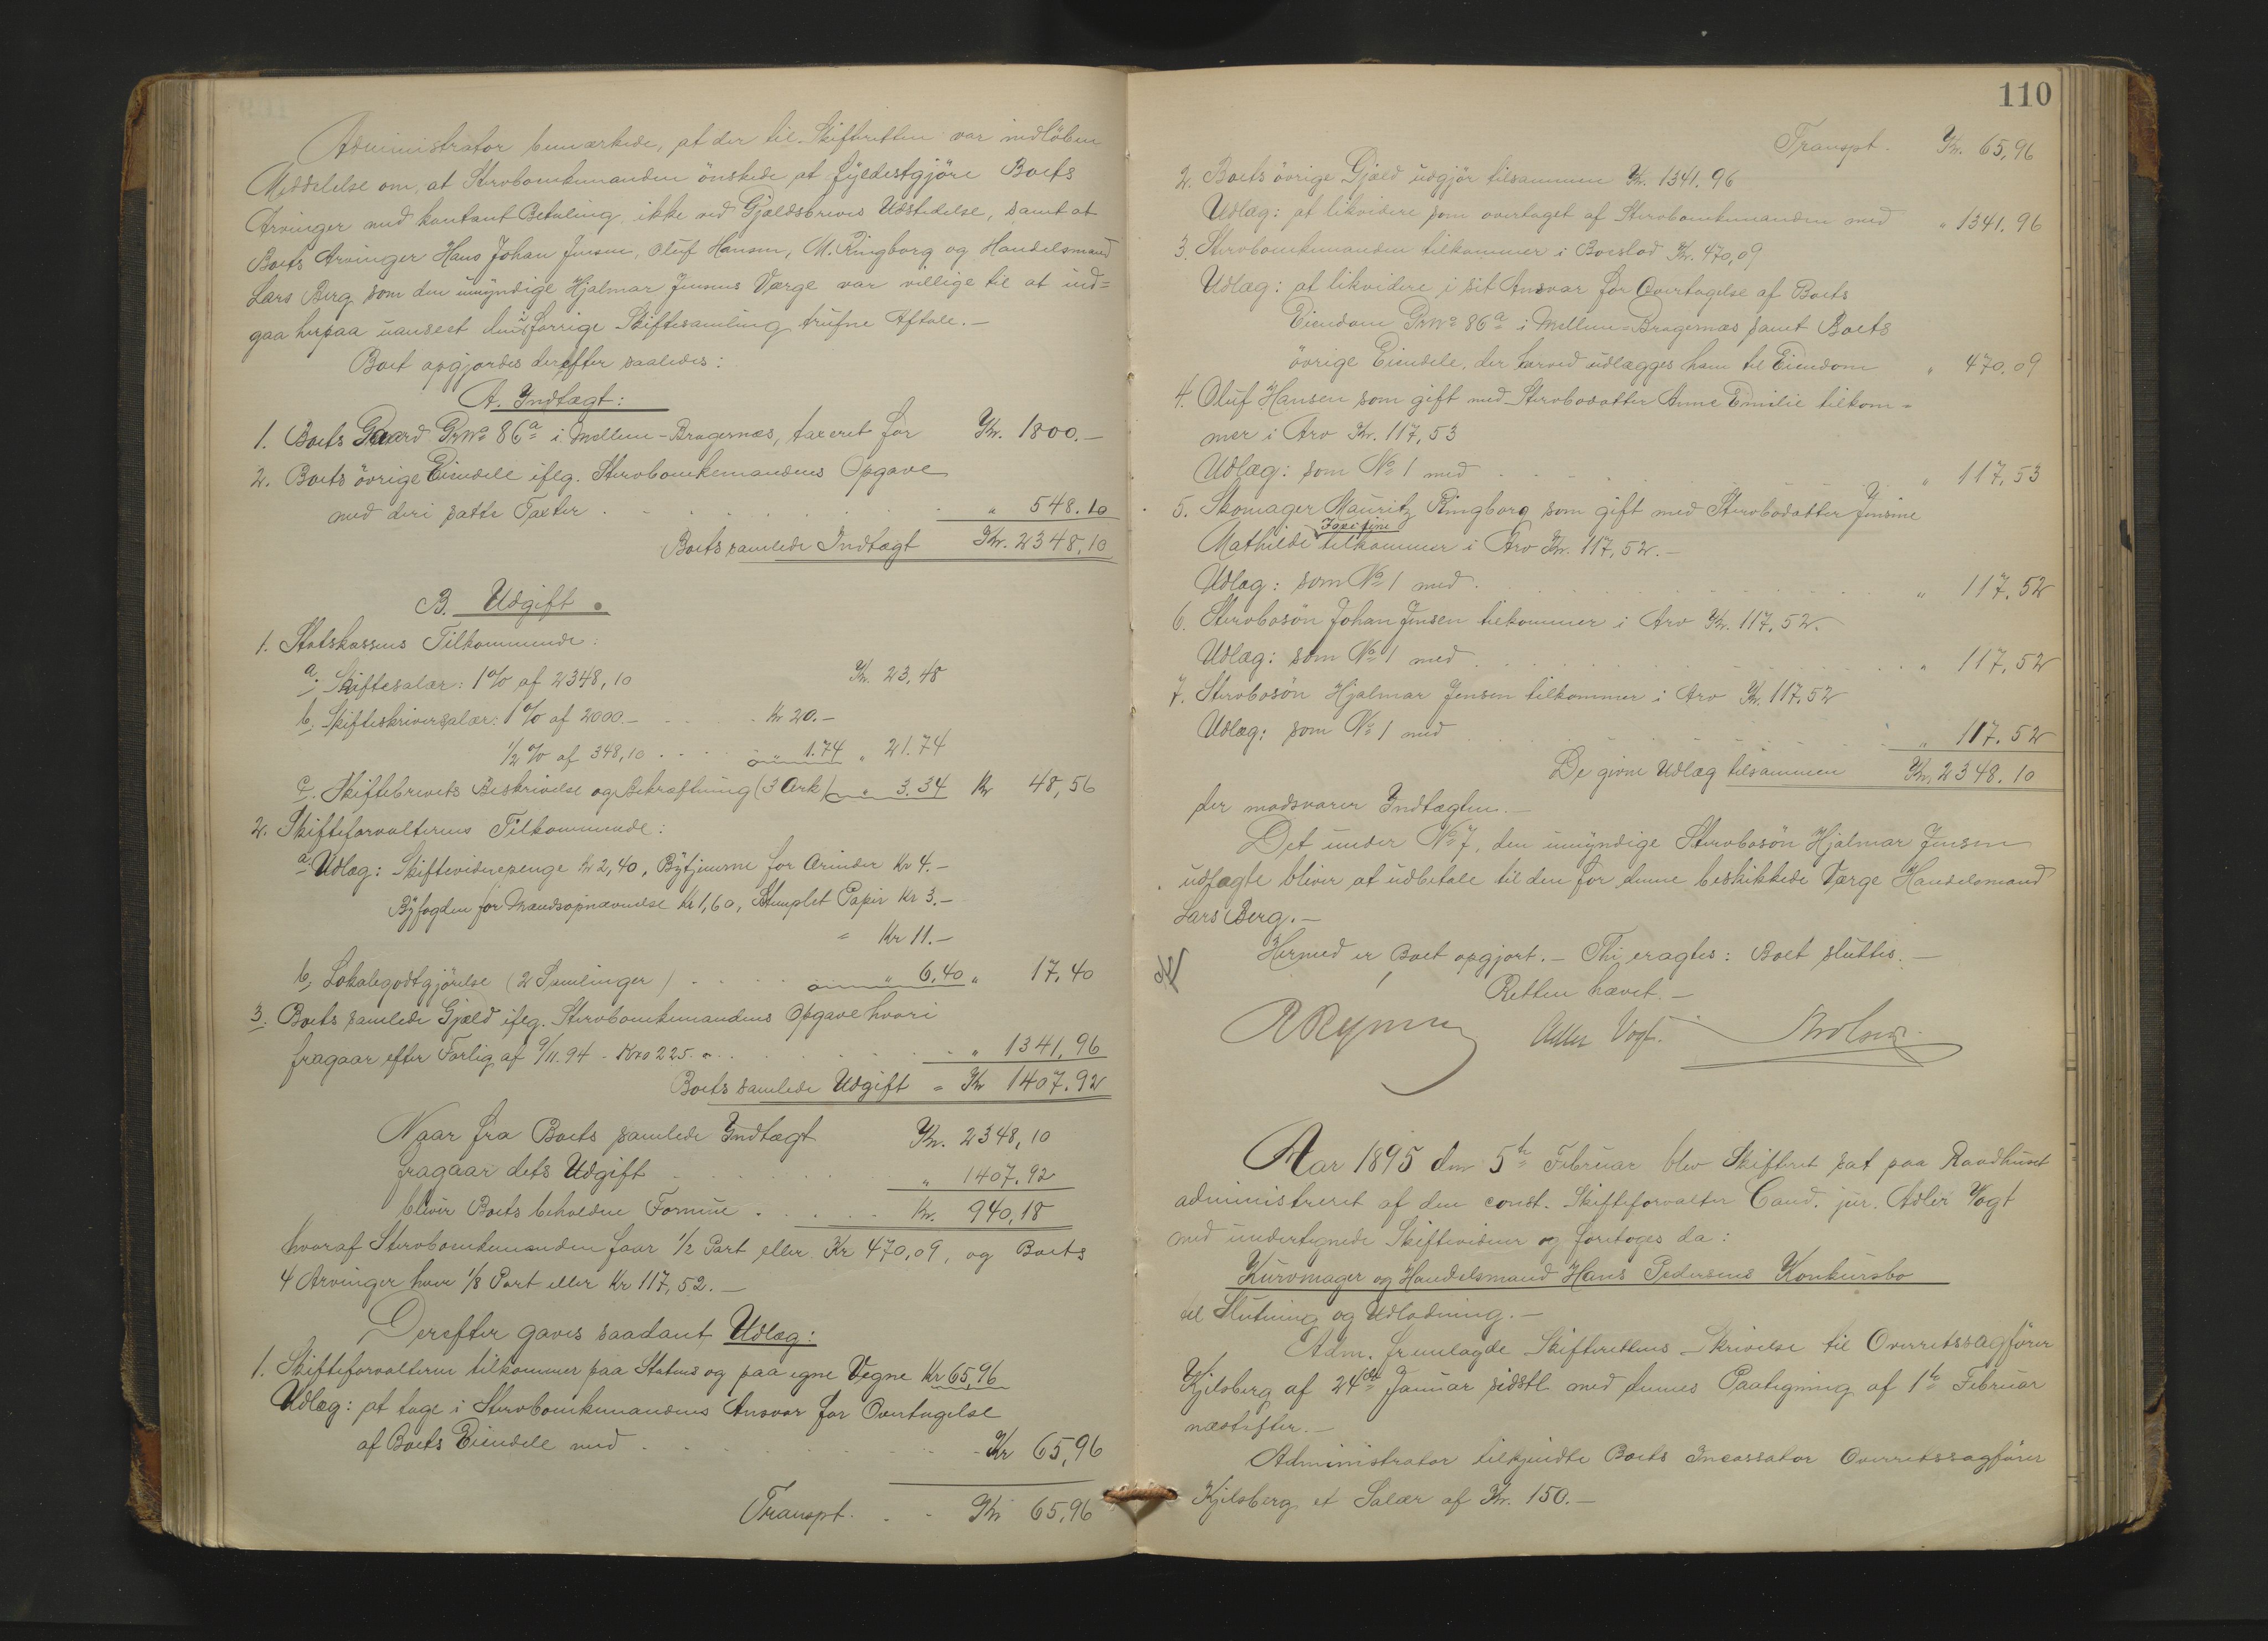 Administrator bemærkede, at der til Skifteretten var indløben
Meddelelse om, at Stervboenkemanden önskede at fyldestgjöre Boets
Arvinger med kontant Betaling, ikke ved Gjældsbrevs Udstedelse, samt at
Boets Arvinger Hans Johan Jensen, Oluf Hansen, M. Ringborg og Handelsmand
Lars Berg som den umyndige Hjalmar Jensens Værge var villige til at ind-
gaa herpaa uanseet den i forrige Skiftesamling trufne Aftale.—
Boet opgjordes derefter saaledes:
A. Indtægt:
1. Boets Gaard GrNo 86a i Mellem-Bragernæs, taxeret for Kr. 1800.—
2. Boets övrige Eiendele iflg. Stervboenkemandens Opgave
med deri satte Taxter . . . . . . . . " 548.10
Boets samlede Indtægt Kr. 2348,10
B. Udgift.
1. Statskassens Tilkommende:
a. Skiftesalær: 1% af 2348,10 Kr. 23,48
b. Skifteskriversalær: 1% af 2000.— Kr 20.—
1/2 % af 348,10 . . . . " 1.74 " 21.74
c. Skiftebrevets Beskrivelse og Bekræftning (3 Ark) " 3.34 Kr 48,56
2. Skifteforvalterens Tilkommende:
a. Udlæg: Skiftevidnepenge Kr 2,40, Bytjenerne for Ærinder Kr 4.—
Byfogden for Mandsopnævnelse Kr 1,60, Stemplet Papir Kr 3.—
= Kr 11.—
b, Lokalegodtgjörelse (2 Samlinger) . . . . " 6,40 " 17,40
3. Boets samlede Gjæld iflg. Stervboenkemandens Opgave hvori
fragaar efter Forlig af 9/11.94 - Kr 225.- . . . . . " 1341,96
Boets samlede Udgift = Kr 1407.92
Naar fra Boets samlede Indtægt Kr. 2348,10
fragaar dets Udgift . . . . . " 1407.92
bliver Boets beholdne Formue . . . . . Kr. 940,18
hvoraf Stervboenkemanden faar 1/2 Part eller Kr 470,09, og Boets
4 Arvinger hver 1/8 Part eller Kr 117,52.—
Derefter gaves saadant Udlæg:
1. Skifteforvalteren tilkommer paa Statens og paa egne Vegne Kr 65,96
Udlæg: at tage i Stervboenkemandens Ansvar for Overtagelse
af Boets Eiendele med . . . . . . - Kr 65,96
Transpt. . - Kr 65,96
110
Transpt. Kr. 65,96
2. Boets övrige Gjæld udgjör tilsammen Kr. 1341.96
Udlæg: at likvidere som overtaget af Stervboenkemanden med " 1341.96
3. Stervboenkemanden tilkommer i Boeslod Kr. 470,09
Udlæg: at likvidere i sit Ansvar for Overtagelse af Boets
Eiendom GrNo 86a i Mellem-Bragernæs samt Boets
övrige Eiendele, der herved udlægges ham til Eiendom " 470.09
4. Oluf Hansen som gift med Stervbodatter Anne Emilie tilkom-
mer i Arv Kr. 117,53
Udlæg: som No 1 med . . . . . . " 117,53
5. Skomager Mauritz Ringborg som gift med Stervbodatter Jensine
Mathilde Josefine tilkommer i Arv Kr. 117,52.—
Udlæg: som No 1 med . . . . . . " 117.52
6. Stervbosön Johan Jensen tilkommer i Arv Kr. 117,52.
Udlæg: som No 1 med . . . . . . " 117,52
7. Stervbosön Hjalmar Jensen tilkommer i Arv Kr. 117.52
Udlæg: som No 1 med . . . . . . " 117.52
De givne Udlæg tilsammen Kr. 2348.10
der modsvarer Indtægten.—
Det under No 7, den umyndige Stervbosön Hjalmar Jensen
udlagte bliver at udbetale til den for denne beskikkede Værge Handelsmand
Lars Berg.—
Hermed er Boet opgjort.— Thi eragtes: Boet sluttes.—
Retten hævet.—
Adler Vogt.
Aar 1895 den 5te Februar blev Skifteret sat paa Raadhuset
administreret af den const. Skifteforvalter Cand. jur. Adler Vogt
med undertegnede Skiftevidner og foretoges da:
Kurvmager og Handelsmand Hans Pedersens Konkursbo
til Slutning og Udlodning.—
Adm. fremlagde Skifterettens Skrivelse til Overretssagförer
Kjelsberg af 24de Januar sidstl. med dennes Paategning af 1te Februar
næstefter.—
Administrator tilkjendte Boets Incassator Overretssagförer
Kjelsberg et Salær af Kr. 150.—